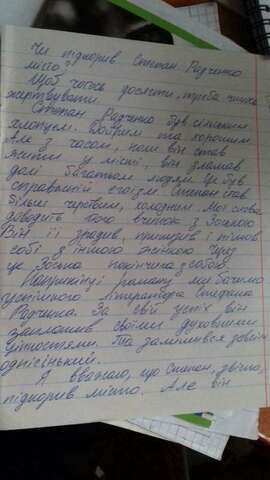 Чи підкорив Степан Радченко
місто?
Щоб чогось досягти, треба чимось
жертвувати.
Степан Радченко був сільським
хлопцем. Добрим та хорошим
Але з часом, коли він став
жити у місті, він зламав
долі багатьом людям. Це був
справжній егоїзм. Степан став
більш черствим, холодним. Мої слова
доводить його вчинок з Зоською
Він її зрадив, принизив і пішов
собі з іншою жінкою. Через
це Зоська покінчила з собою.
Наприкінці роману ми бачимо
успішного літератора Стефана
Радченка. За свій успіх він
заплатив своїми духовними
цінностями. Та залишився зовсім
однісінький.
Я вважаю, що Степан, звісно,
підкорив місто. Але він